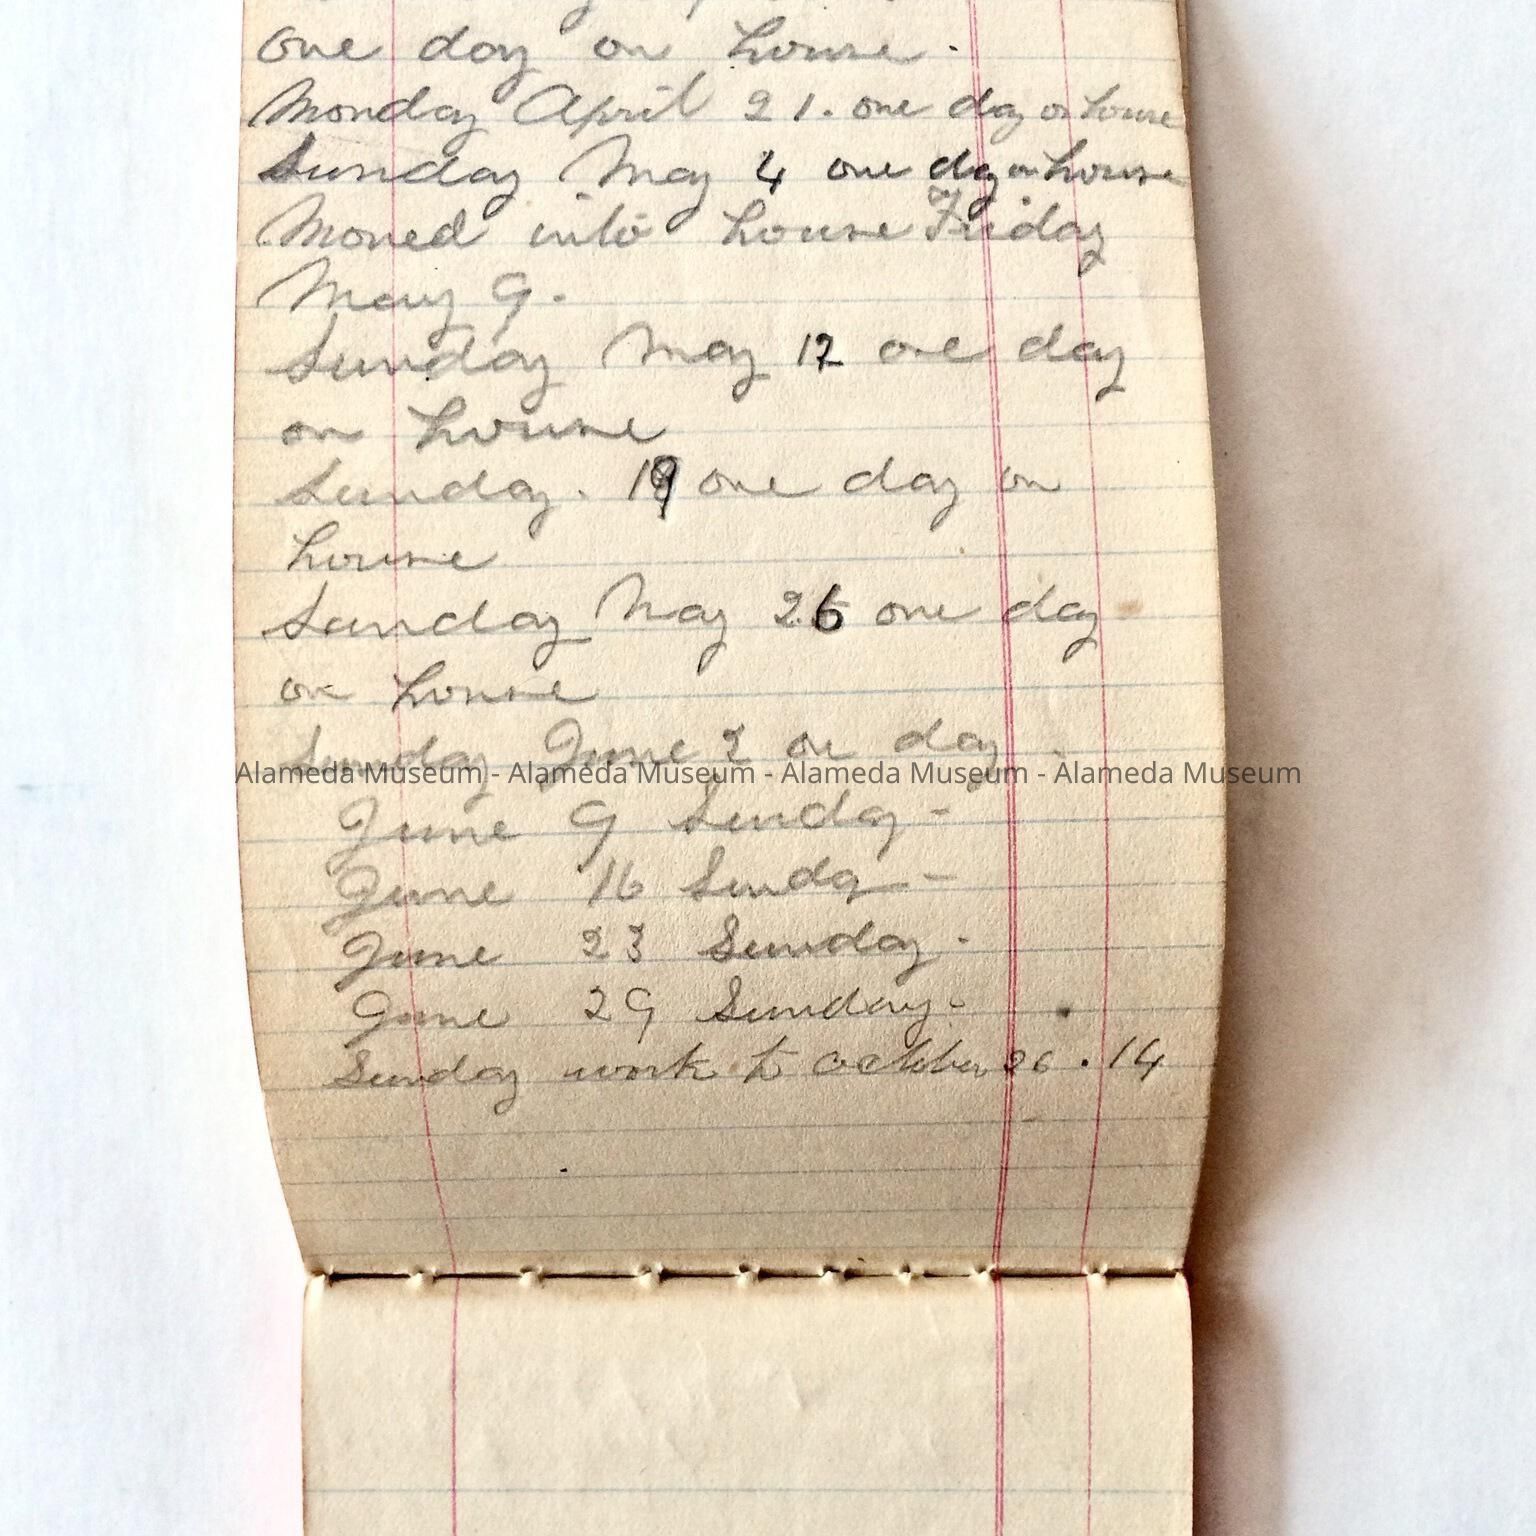 one day on house.
Monday April 21. one day on house
Sunday May 4 one day on house
Moved into house Friday
May 9.
Sunday May 12 one day
on house
Sunday. 19 one day on
house
Sunday May 26 one day
on house
Sunday June 2 on day
Alameda Museum - Alameda Museum - Alameda Museum - Alameda Museum
June 9 Sunday -
June 16 Sunday -
June 23 Sunday -
June 29 Sunday -
Sunday work to October 26 . 14